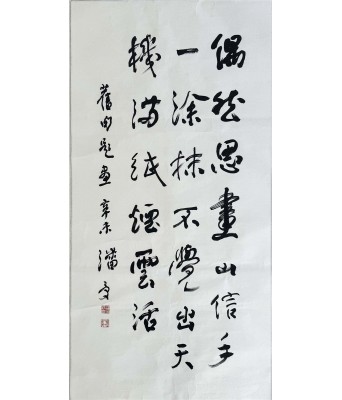 偶然思畫山信手
一塗抹不覺出天
機滿紙煙雲活
舊句題畫辛未潘受